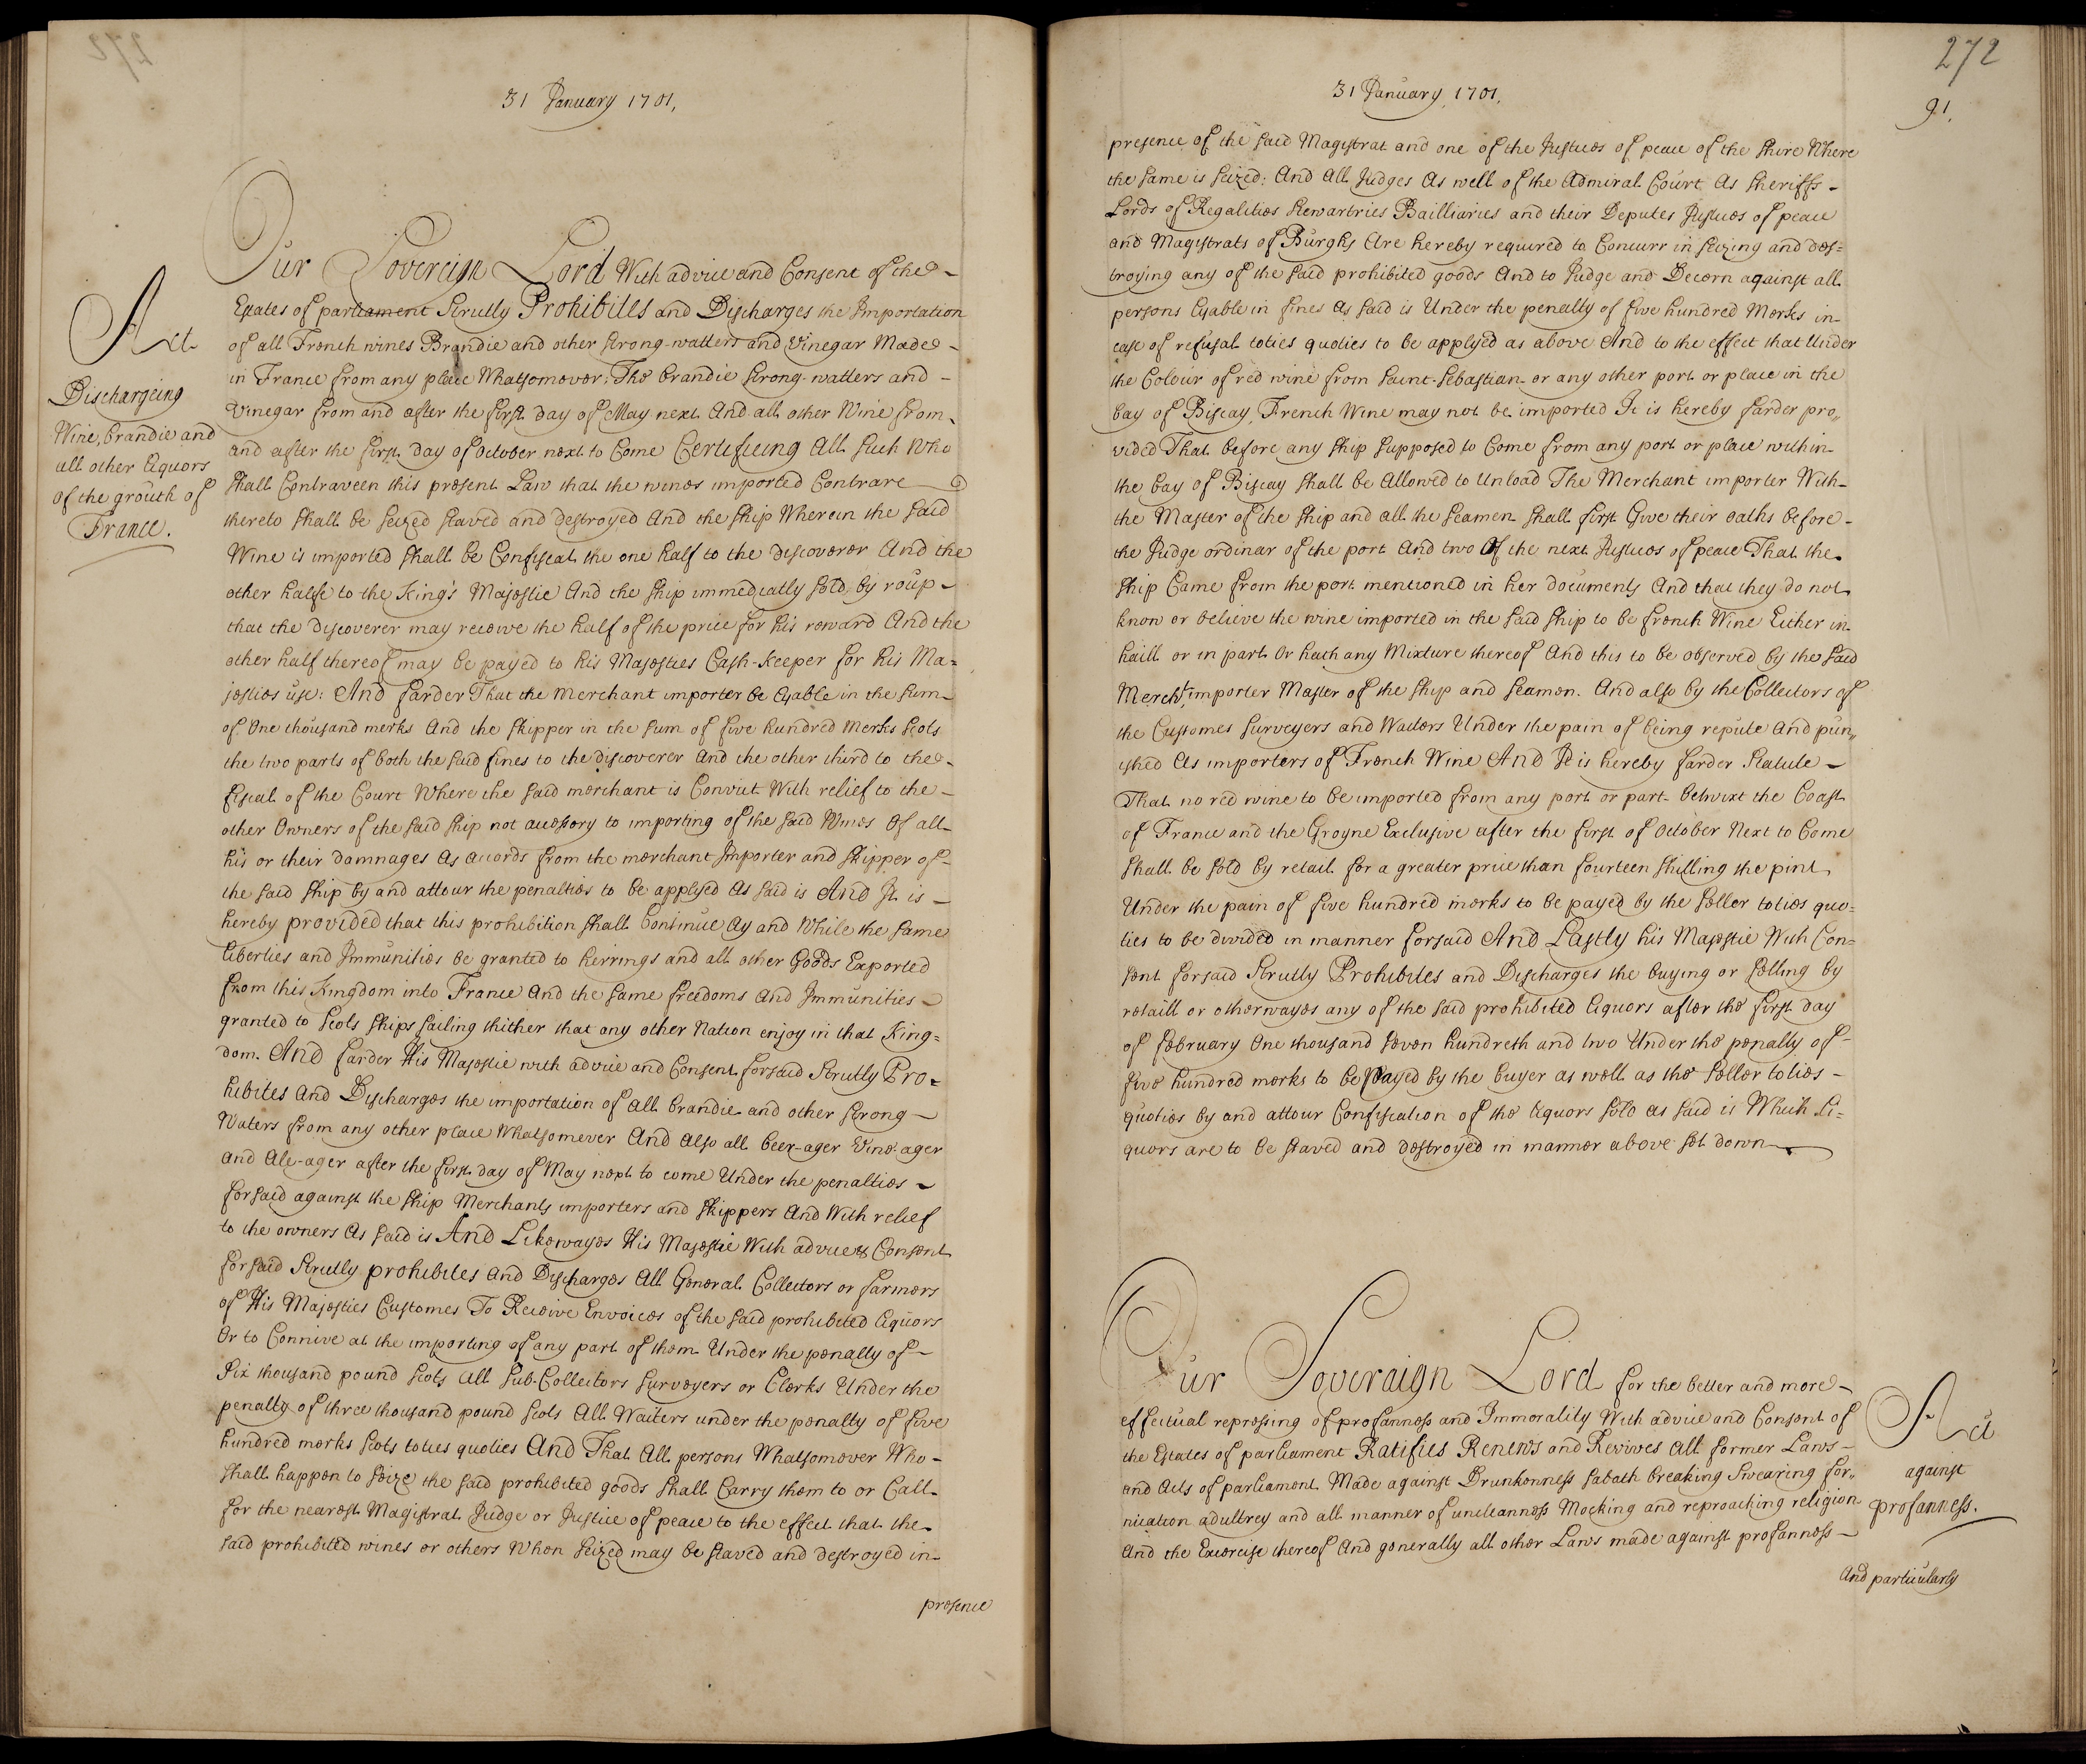 31 January 1701,
Act
Dischargeing
Wine, brandie and
all other liquors
of the grouth of
France.
Our Sovereign Lord With advice and Consent of the
Estates of parliament Strictly Prohibites and Discharges the Importation
of all French wines Brandie and other strong-watters and vinegar Made
in France from any place Whatsomover, The brandie strong-watters and
Vinegar from and after the first day of May next And all other Wine from
and after the first day of October next to Come Certificing All such Who
shall Contraveen this present Law that the wines imported Contrare
thereto shall be seized staved and destroyed And the ship Wherein the said
Wine is imported shall be Confiscat the one half to the discoverer And the
other halfe to the King's Majestie And the ship immediatly sold by roup
that the discoverer may receive the half of the price for his reward And the
other half thereof may be payed to his Majesties Cash-keeper for his Ma=
jesties use: And farder That the merchant importer be lyable in the sum
of One thousand merks And the skipper in the sum of five hundred merks scots
the two parts of both the said fines to the discoverer And the other third to the
fiscal of the Court Where the said merchant is Convict With relief to the
other Owners of the said ship not accessory to importing of the said Wines Of all
his or their damnages As accords from the merchant Importer and skipper of
the said ship by and attour the penalties to be applyed As said is And It is
hereby provided that this prohibition shall Continue Ay and While the same
liberties and Immunities be granted to herrings and all other Goods Exported
from this Kingdom into France And the same freedoms And Immunities
granted to scots ships sailing thither that any other Nation enjoy in that King=
dom. And farder His Majestie with advice and Consent forsaid Strictly Pro=
hibites And Discharges the importation of All brandie and other strong
Waters from any other place Whatsomever And Also all beer-ager Vine-ager
and Ale-ager after the first day of May next to come Under the penalties
forsaid against the ship Merchants importers and skippers And With relief
to the owners As said is And Likewayes His Majestie With advice & Consent
forsaid Strictly prohibites And Discharges All General Collectors or farmers
of His Majesties Customes To Receive Envoices of the said prohibited liquors
Or to Connive at the importing of any part of them Under the penalty of
Six thousand pound scots All Sub-Collectors Surveyers or Clerks Under the
penalty of three thousand pound scots All Waiters under the penalty of five
hundred merks scots toties quoties And That All persons Whatsomever Who
shall happen to seize the said prohibited goods shall Carry them to or Call
for the nearest Magistrat Judge or Justice of peace to the effect that the
said prohibited wines or others When seized may be staved and destroyed in
presence
272
91.
31 January, 1701.
presence of the said Magistrat and one of the Justices of peace of the shire Where
the same is seized: And All Judges As well of the Admiral Court As sheriffs
Lords of Regalities stewartries Bailliaries and their Deputes Justices of peace
and Magistrats of Burghs Are hereby required to Concurr in seizing and des=
troying any of the said prohibited goods And to Judge and Decern against all
persons lyable in fines As said is Under the penalty of five hundred Merks in
case of refusal toties quoties to be applyed as above And to the effect that Under
the Colour of red wine from Saint-Sebastian or any other port or place in the
bay of Biscay, French Wine may not be imported It is hereby farder pro„
vided That before any ship supposed to Come from any port or place within
the bay of Biscay shall be Allowed to Unload The Merchant importer With
the Master of the ship and all the seamen shall first Give their oaths before
the Judge ordinar of the port And two Of the next Justices of peace That the
ship Came from the port mentioned in her documents And that they do not
know or believe the wine imported in the said ship to be french Wine Either in
haill or in part Or hath any Mixture thereof And this to be observed by the said
Mercht. importer Master of the ship and seamen. And also by the Collectors of
the Customes Surveyers and Waiters Under the pain of being repute And pun„
ished As importers of French Wine And It is hereby farder Statute
That no red wine to be imported from any port or part betwixt the Coast
of France and the Groyne Exclusive after the first of October Next to Come
shall be sold by retail for a greater price than fourteen shilling the pint
Under the pain of five hundred merks to be payed by the seller toties quo=
ties to be divided in manner forsaid And Lastly his Majestie With Con=
sent forsaid Strictly Prohibites and Discharges the buying or selling by
retaill or otherwayes any of the said prohibited liquors after the first day
of february One thousand seven hundreth and two Under the penalty of
five hundred merks to be payed by the buyer as well as the seller toties
quoties by and attour Confiscation of the liquors sold as said is Which li=
quors are to be staved and destroyed in manner above set down
Our Soveraign Lord for the better and more
effectual repressing of profanness and Immorality With advice and Consent of
the Estates of parliament Ratifies Renews and Revives All former Laws
and Acts of parliament Made against Drunkenness sabath breaking Swearing for„
nication adultrey and all manner of uncleanness Mocking and reproaching religion
And the Exercise thereof And generally all other Laws made against profanness
Act
against
profanness.
And particularly